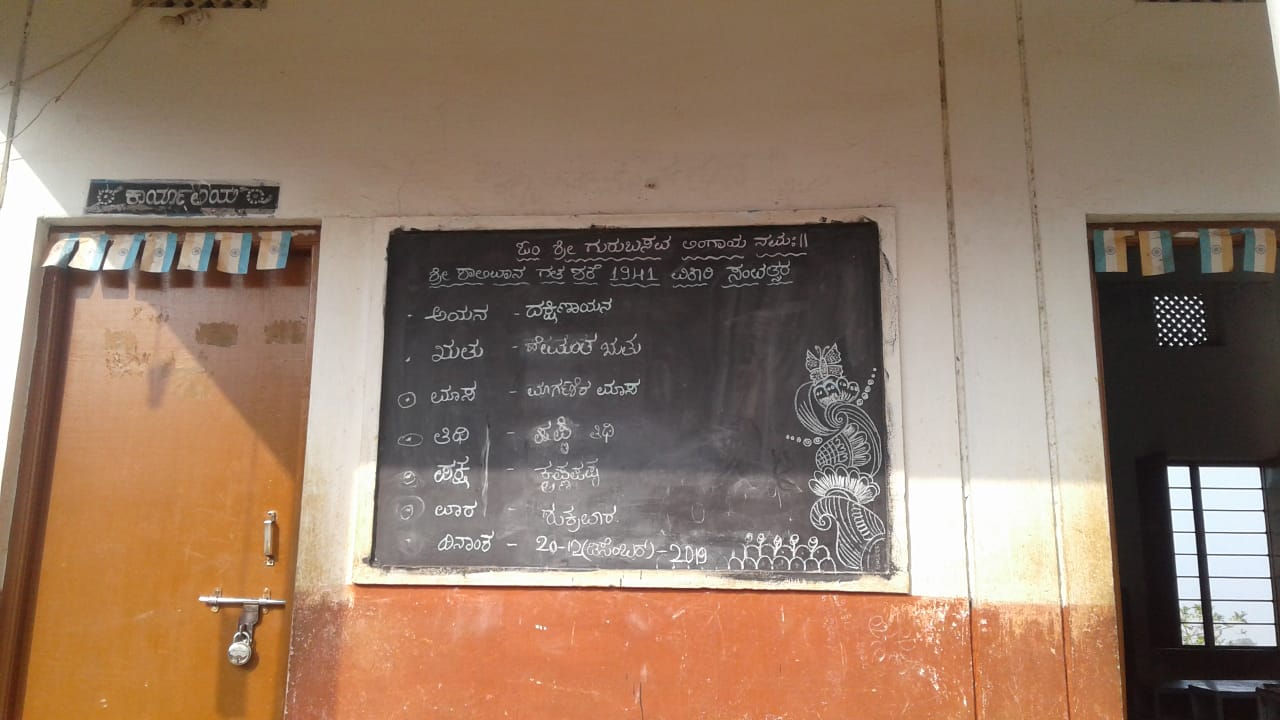 ಕಾರ್ಯಾಲಯ
ಓಂ ಶ್ರೀ ಗುರುಬಸವ ಲಿಂಗಾಯ ನಮಃ||
ಶ್ರೀ ಶಾಲಿವಾನ ಗತ ಶಕೆ 1941 ವಿಕಾರಿ ಸಂವತ್ಸರ
· ಅಯನ - ದಕ್ಷಿಣಾಯನ
· ಋತು - ಹೇಮಂತ ಋತು
ಮಾಸ - ಮಾರ್ಗಶಿರ ಮಾಸ
ತಿಥಿ - ತಿಥಿ
ಪಕ್ಷ - ಕೃಷ್ಣಪಕ್ಷ
ವಾರ - ಶುಕ್ರವಾರ.
ದಿನಾಂಕ - 20-12(ಡಿಸೆಂಬರ)-2019